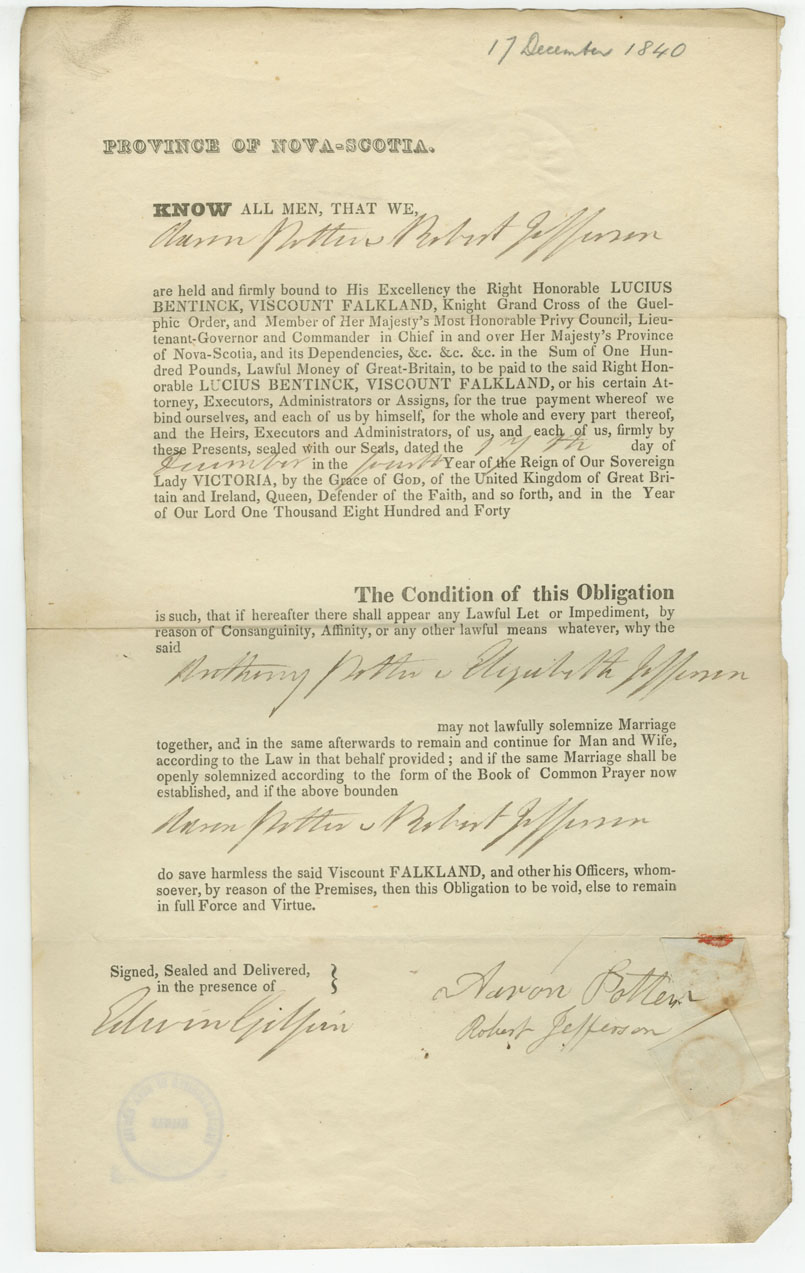 17 December 1840
PROVINCE OF NOVA-SCOTIA.
KNOW ALL MEN, THAT WE,
Aaron Potter & Robert Jefferson
are held and firmly bound to His Excellency the Right Honorable LUCIUS
BENTINCK, VISCOUNT FALKLAND, Knight Grand Cross of the Guel-
phic Order, and Member of Her Majesty's Most Honorable Privy Council, Lieu-
tenant-Governor and Commander in Chief in and over Her Majesty's Province
of Nova-Scotia, and its Dependencies, &c. &c. &c. in the Sum of One Hun-
dred Pounds, Lawful Money of Great-Britain, to be paid to the said Right Hon-
orable LUCIUS BENTINCK, VISCOUNT FALKLAND, or his certain At-
torney, Executors, Administrators or Assigns, for the true payment whereof we
bind ourselves, and each of us by himself, for the whole and every part thereof,
and the Heirs, Executors and Administrators, of us, and each of us, firmly by
these Presents, sealed with our Seals, dated the 17th day of
December in the fourth Year of the Reign of Our Sovereign
Lady VICTORIA, by the Grace of GOD, of the United Kingdom of Great Bri-
tain and Ireland, Queen, Defender of the Faith, and so forth, and in the Year
of Our Lord One Thousand Eight Hundred and Forty
The Condition of this Obligation
is such, that if hereafter there shall appear any Lawful Let or Impediment, by
reason of Consanguinity, Affinity, or any other lawful means whatever, why the
said
Anthony Potter & Elizabeth Jefferson
may not lawfully solemnize Marriage
together, and in the same afterwards to remain and continue for Man and Wife,
according to the Law in that behalf provided; and if the same Marriage shall be
openly solemnized according to the form of the Book of Common Prayer now
established, and if the above bounden
Aaron Potter & Robert Jefferson
do save harmless the said Viscount FALKLAND, and other his Officers, whom-
soever, by reason of the Premises, then this Obligation to be void, else to remain
in full Force and Virtue.
Signed, Sealed and Delivered,
in the presence of
Edwin Gilpin
Aaron Potter
Robert Jefferson